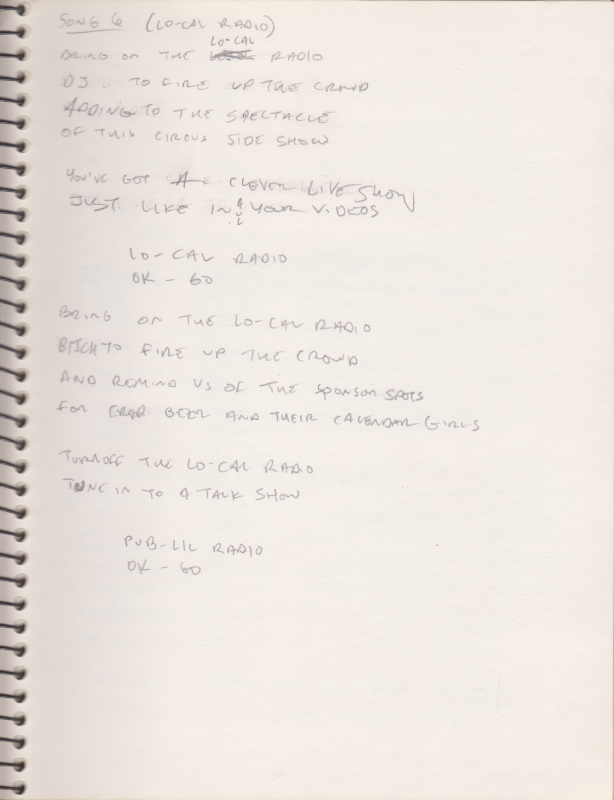 SONG 6 (LO-CAL RADIO)
BRING ON THE LO-CAL RADIO
DJ TO FIRE UP THE CROWD
ADDING TO THE SPECTACLE
OF THIS CIRCUS SIDE SHOW
YOU'VE GOT A CLEVER LIVE SHOW
JUST LIKE IN ALL YOUR VIDEOS
LO-CAL RADIO
OK - GO
BRING ON THE LO-CAL RADIO
BITCH TO FIRE UP THE CROWD
AND REMIND US OF THE SPONSOR SPOTS
FOR CRAP BEER AND THEIR CALENDAR GIRLS
TURN OFF THE LO-CAL RADIO
TUNE IN TO A TALK SHOW
PUB-LIC RADIO
OK - GO